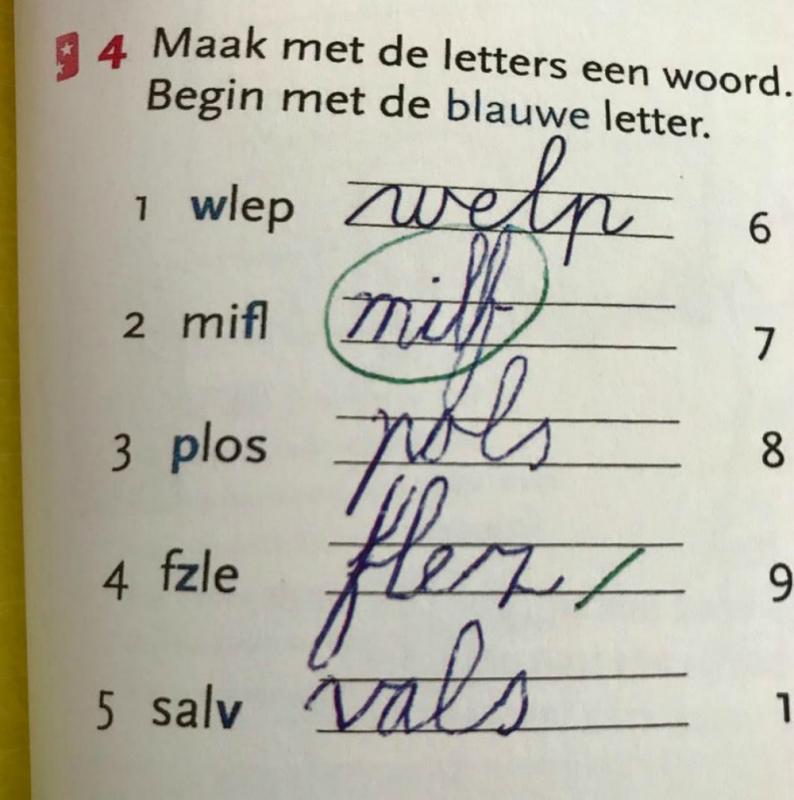 4 Maak met de letters een woord.
Begin met de blauwe letter.
1 wlep welp 6
2 mifl milf 7
3 plos pols 8
4 fzle flez 9
5 salv vals 1